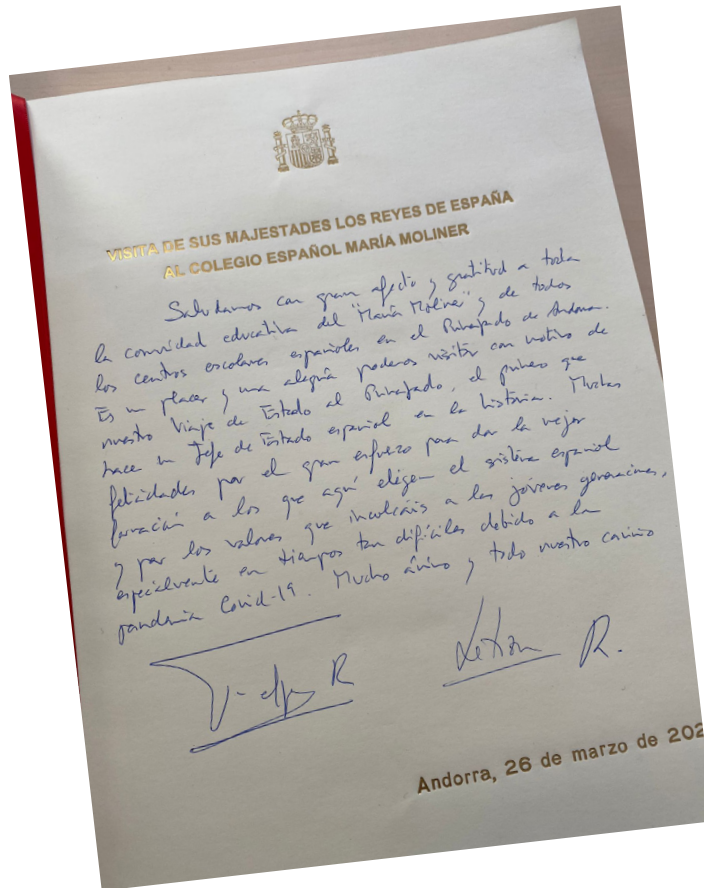 VISITA DE SUS MAJESTADES LOS REYES DE ESPAÑA
AL COLEGIO ESPAÑOL MARÍA MOLINER
Saludamos con gran afecto y gratitud a toda
la comunidad educativa del "María Moliner" y de todos
los centros escolares españoles en el Principado de Andorra.
Es un placer y una alegría poderos visitar con motivo de
nuestro Viaje de Estado al Principado, el primero que
hace un Jefe de Estado español en la historia. Muchas
felicidades por el gran esfuerzo para dar la mejor
formación a los que aquí eligen el sistema español
y por los valores que inculcáis a las jóvenes generaciones,
especialmente en tiempos tan difíciles debido a la
pandemia Covid-19. Mucho ánimo y todo nuestro cariño
Felipe R Letizia R.
Andorra, 26 de marzo de 202